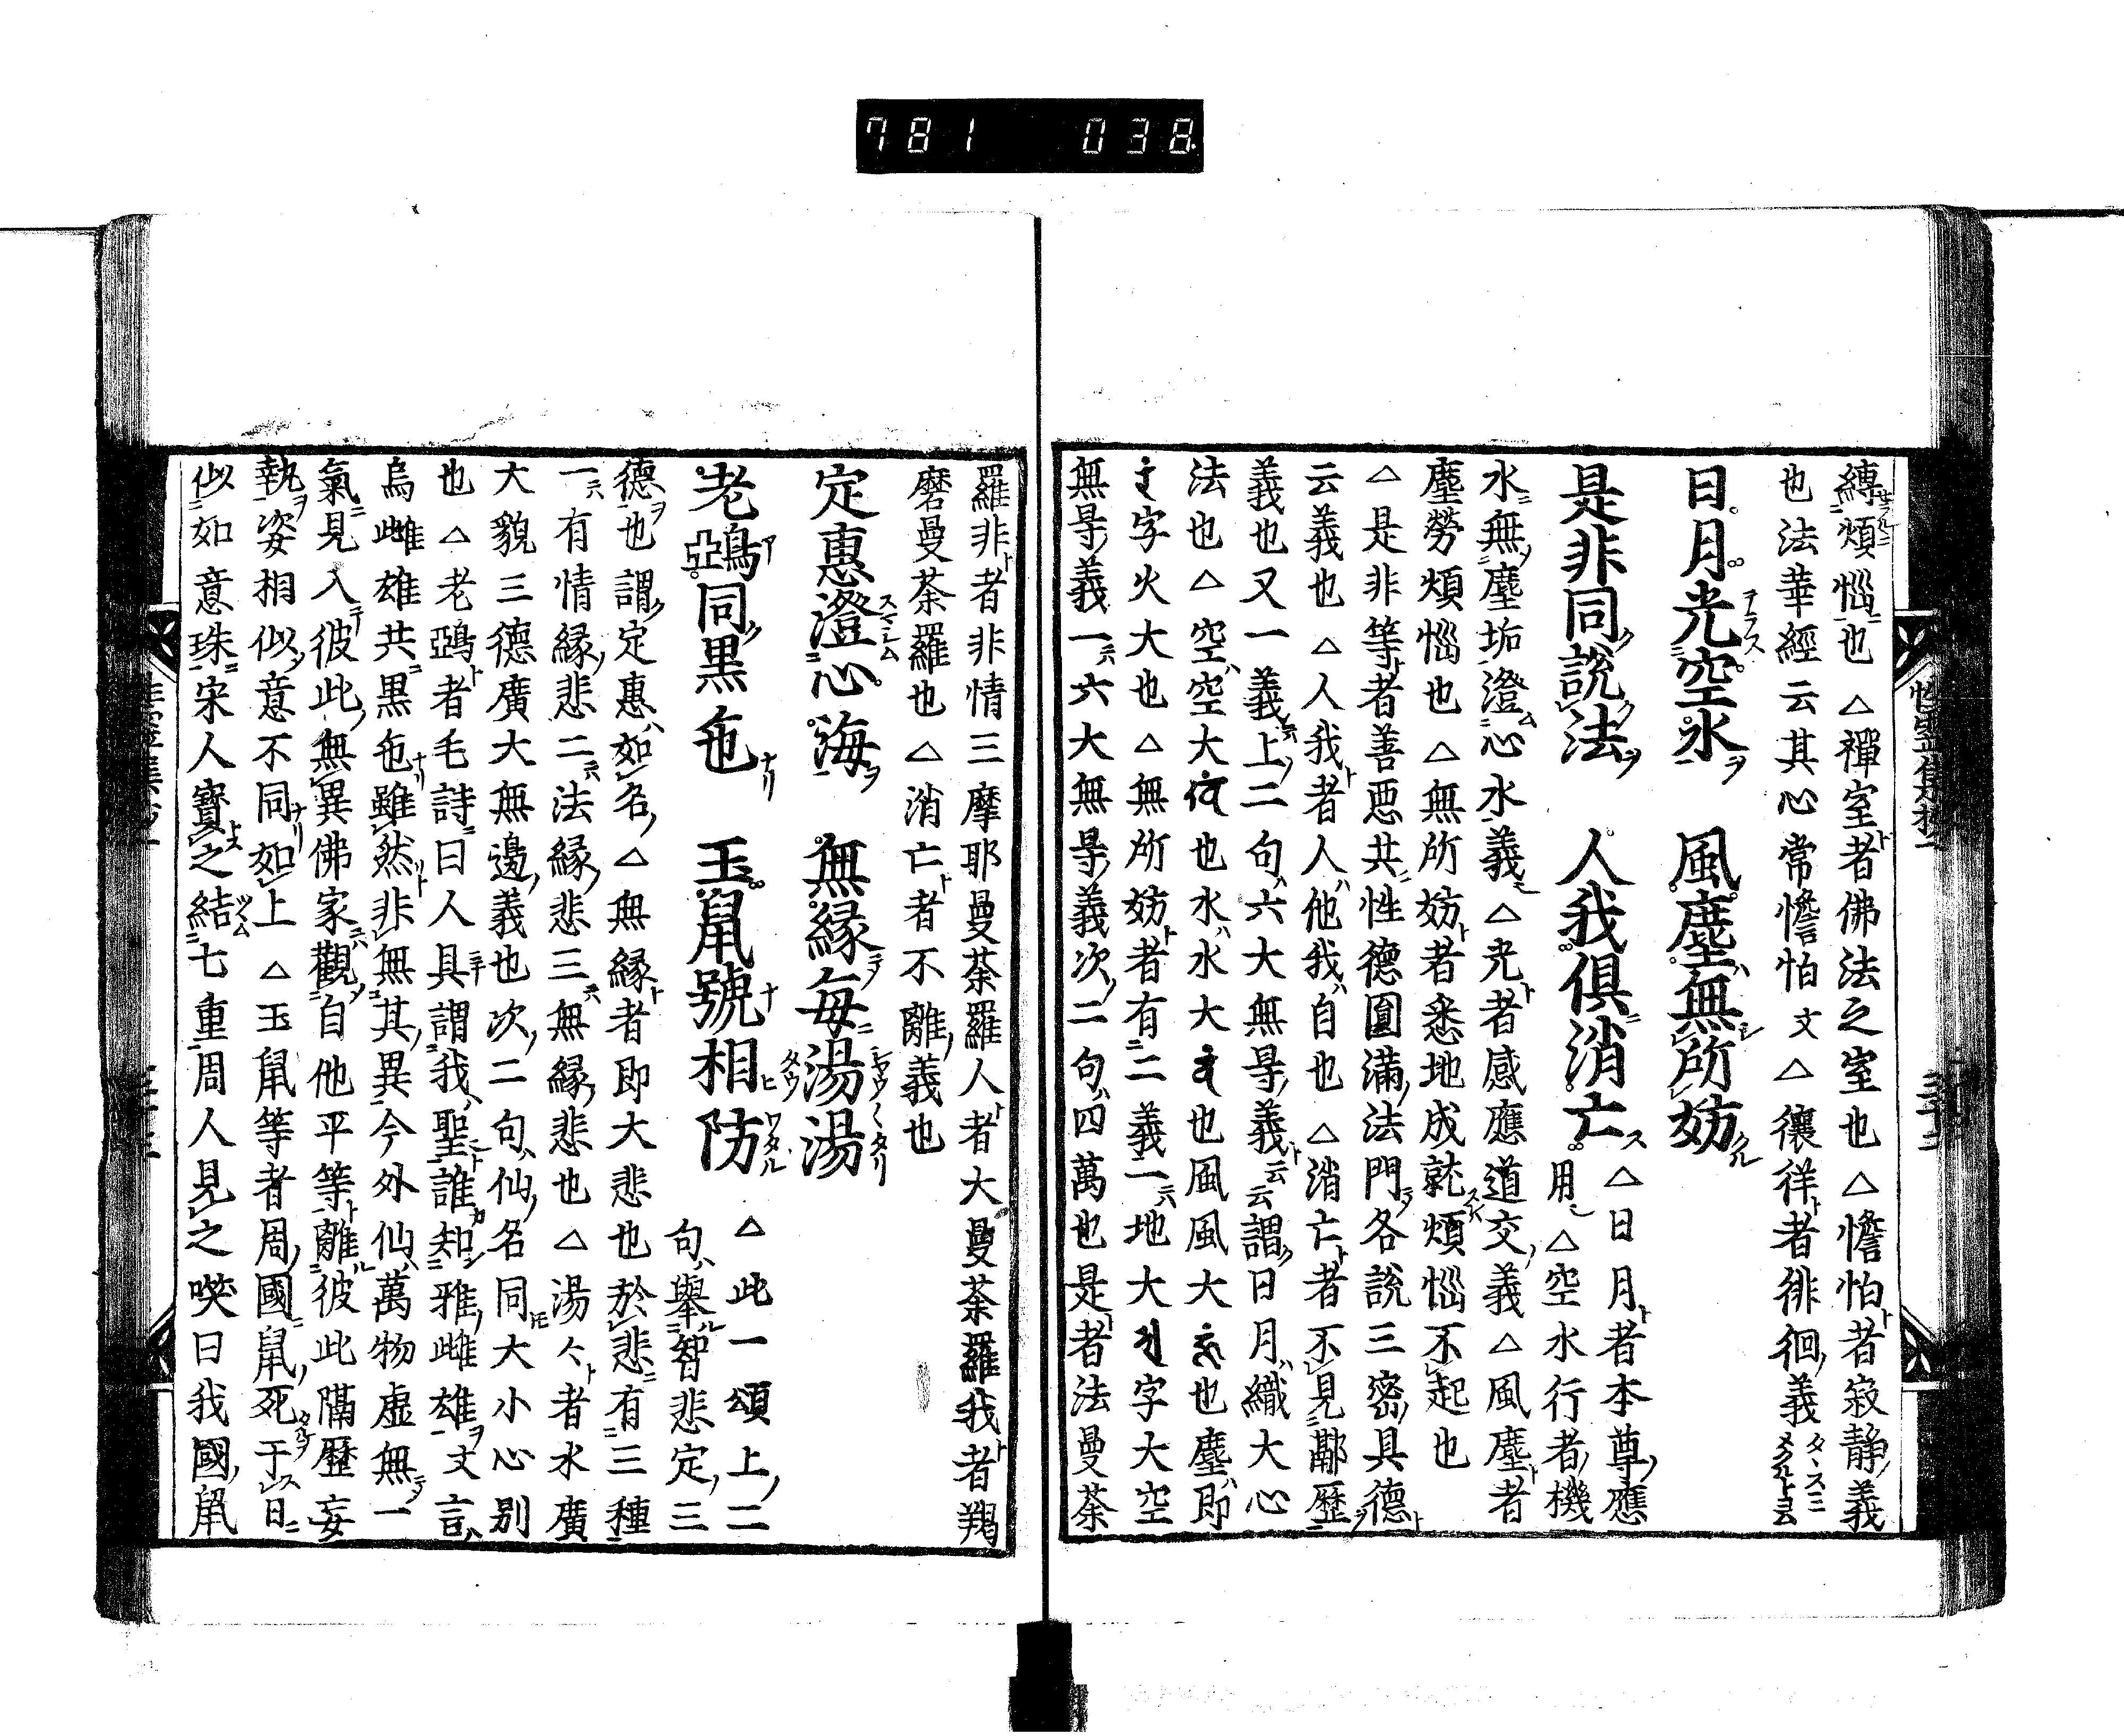 781 038
縛煩惱也△禪室者佛法之室也△憺怕者寂静義
也法華經云其心常憺怕文△儴徉者徘徊義
日月光空水 風塵無所妨
是非同說法 人我俱消亡
△日月者本尊應
用△空水行者機
水無塵垢澄心水義△光者感應道交義△風塵者
塵勞煩惱也△無所妨者悉地成就煩惱不起也
△是非等者善悪共性德圓滿法門各說三密具德
云義也△人我者人他我自也△消亡者不見勘歷
義也又一義上二句六大無㝵義云云謂日月織大心
法也△空空大也水水大也風風大也塵即
字火大也△無所妨者有二義一地大字大空
無㝵義一六大無㝵義次二句四萬也是者法曼荼
羅非者非情三摩耶曼荼羅人者大曼荼羅我者羯
磨曼荼羅也△消亡者不離義也
定惠澄心海 無縁每湯湯
老鵶同黒色 玉鼠號相防
△此一頌上二
句舉智悲定三
德也謂定惠如名△無縁者即大悲也於悲有三種
一有情縁悲二法縁悲三無縁悲也△湯々者水廣
大貌三德廣大無邊義也次二句仙名同大小心別
也△老鵶者毛詩曰人具謂我聖誰知雅雌雄文言
烏雌雄共黒色雖然非無其異今外仙萬物虛無一
氣見入彼此無異佛家觀自他平等離彼此隔歷妄
執姿相似意不同如上△玉鼠等者周國鼠死于日
似如意珠宋人寳之結七重周人見之咲曰我國鼠